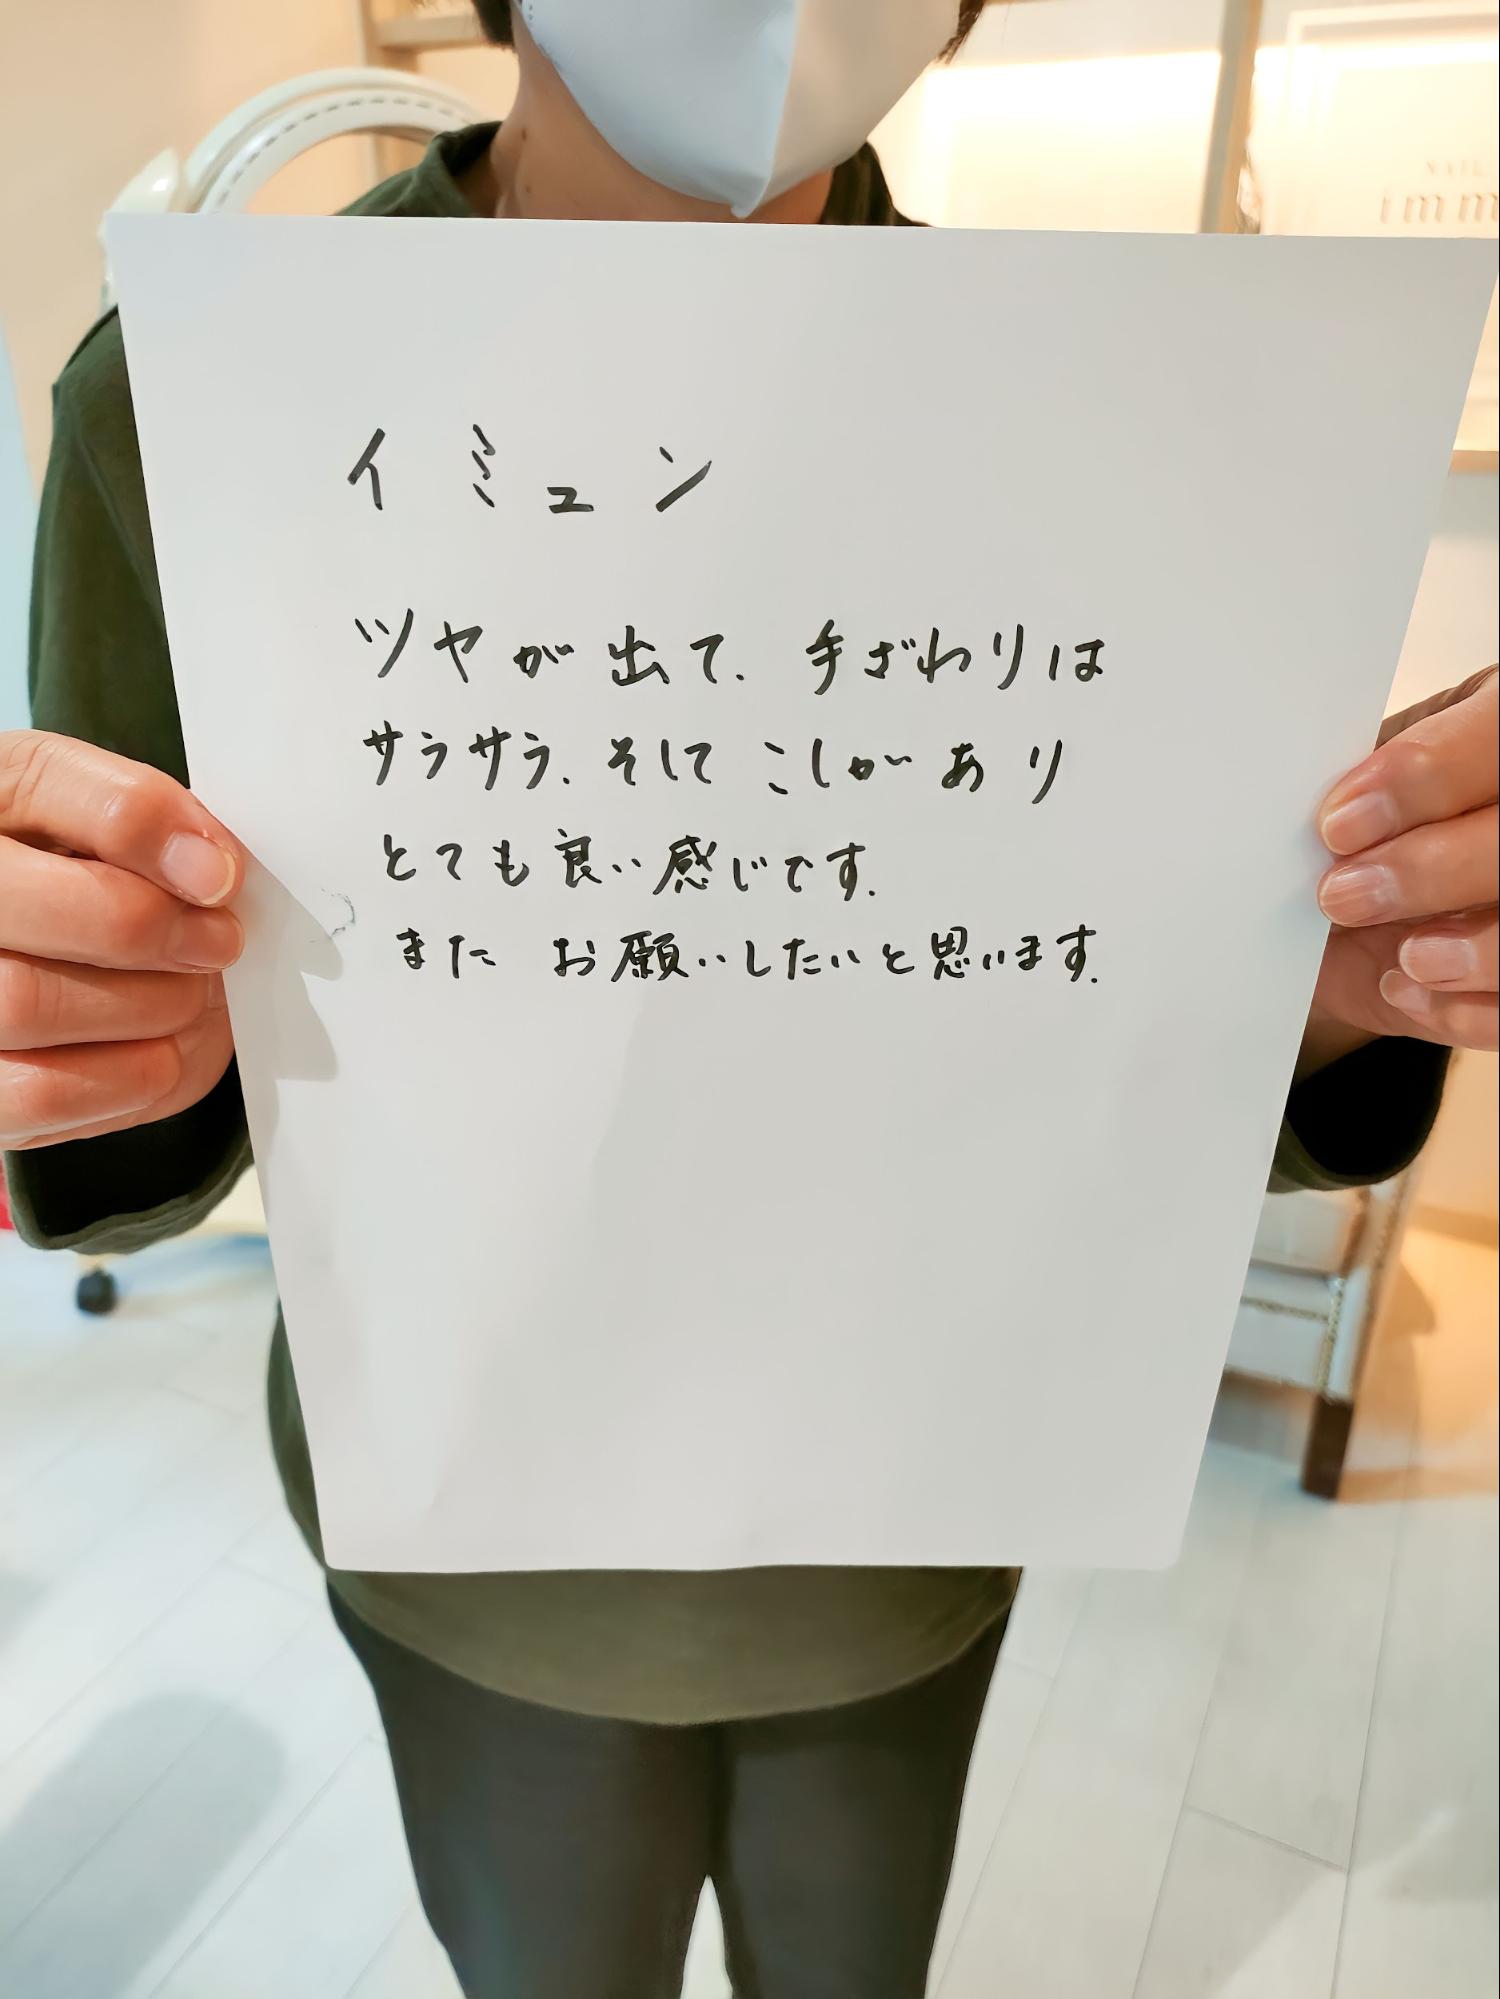 NAIL
imm
イミュン
ツヤが出て、手ざわりは
サラサラ、そしてこしがあり
とても良い感じです。
またお願いしたいと思います。